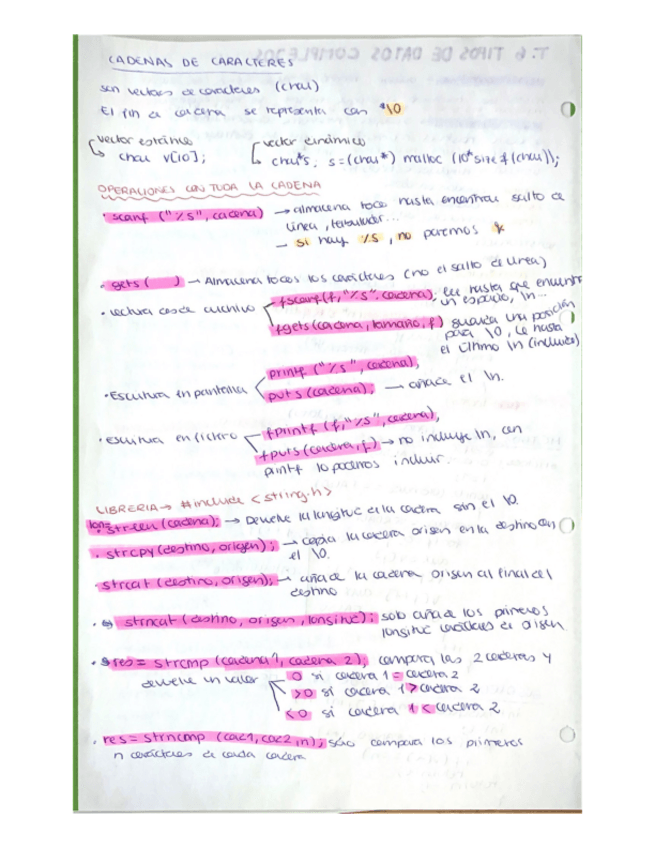 CADENAS DE CARACTERES
son vectores de caracteres (char)
El fin de cadena se representa con \0
vector estático
char v[10];
vector dinámico
char*s; s=(char*) malloc (10*sizeof(char));
OPERACIONES CON TODA LA CADENA
· scanf ("%s", cadena) → almacena todo hasta encontrar salto de
línea, tabulador...
- si hay %s, no ponemos &
· gets( ) → Almacena todos los carácteres (no el salto de línea)
· lectura desde archivo
fscanf(f,"%s", cadena); lee hasta que encuentre
un espacio, \n...
fgets(cadena, tamaño, f) guarda una posición
para \0, lee hasta
el último \n (incluido)
· Escritura en pantalla
printf ("%s", cadena);
puts (cadena); → añade el \n.
· escritura en fichero
fprintf (f, "%s", cadena);
fputs (cadena, f) → no incluye \n, con
printf lo podemos incluir.
LIBRERIA → #include <string.h>
lon= strlen (cadena); → Devuelve la longitud de la cadena sin el \0.
· strcpy (destino, origen); → copia la cadena origen en la destino con
el \0.
· strcat (destino, origen); → añade la cadena origen al final del
destino
· strncat (destino, origen, longitud); solo añade los primeros
longitud carácteres de origen
· res= strcmp (cadena1, cadena 2); compara las 2 cadenas y
devuelve un valor
0 si cadena 1 = cadena 2
>0 si cadena 1 > cadena 2
<0 si cadena 1 < cadena 2
· res= strncmp (cad1, cad2, n); sólo compara los primeros
n carácteres de cada cadena